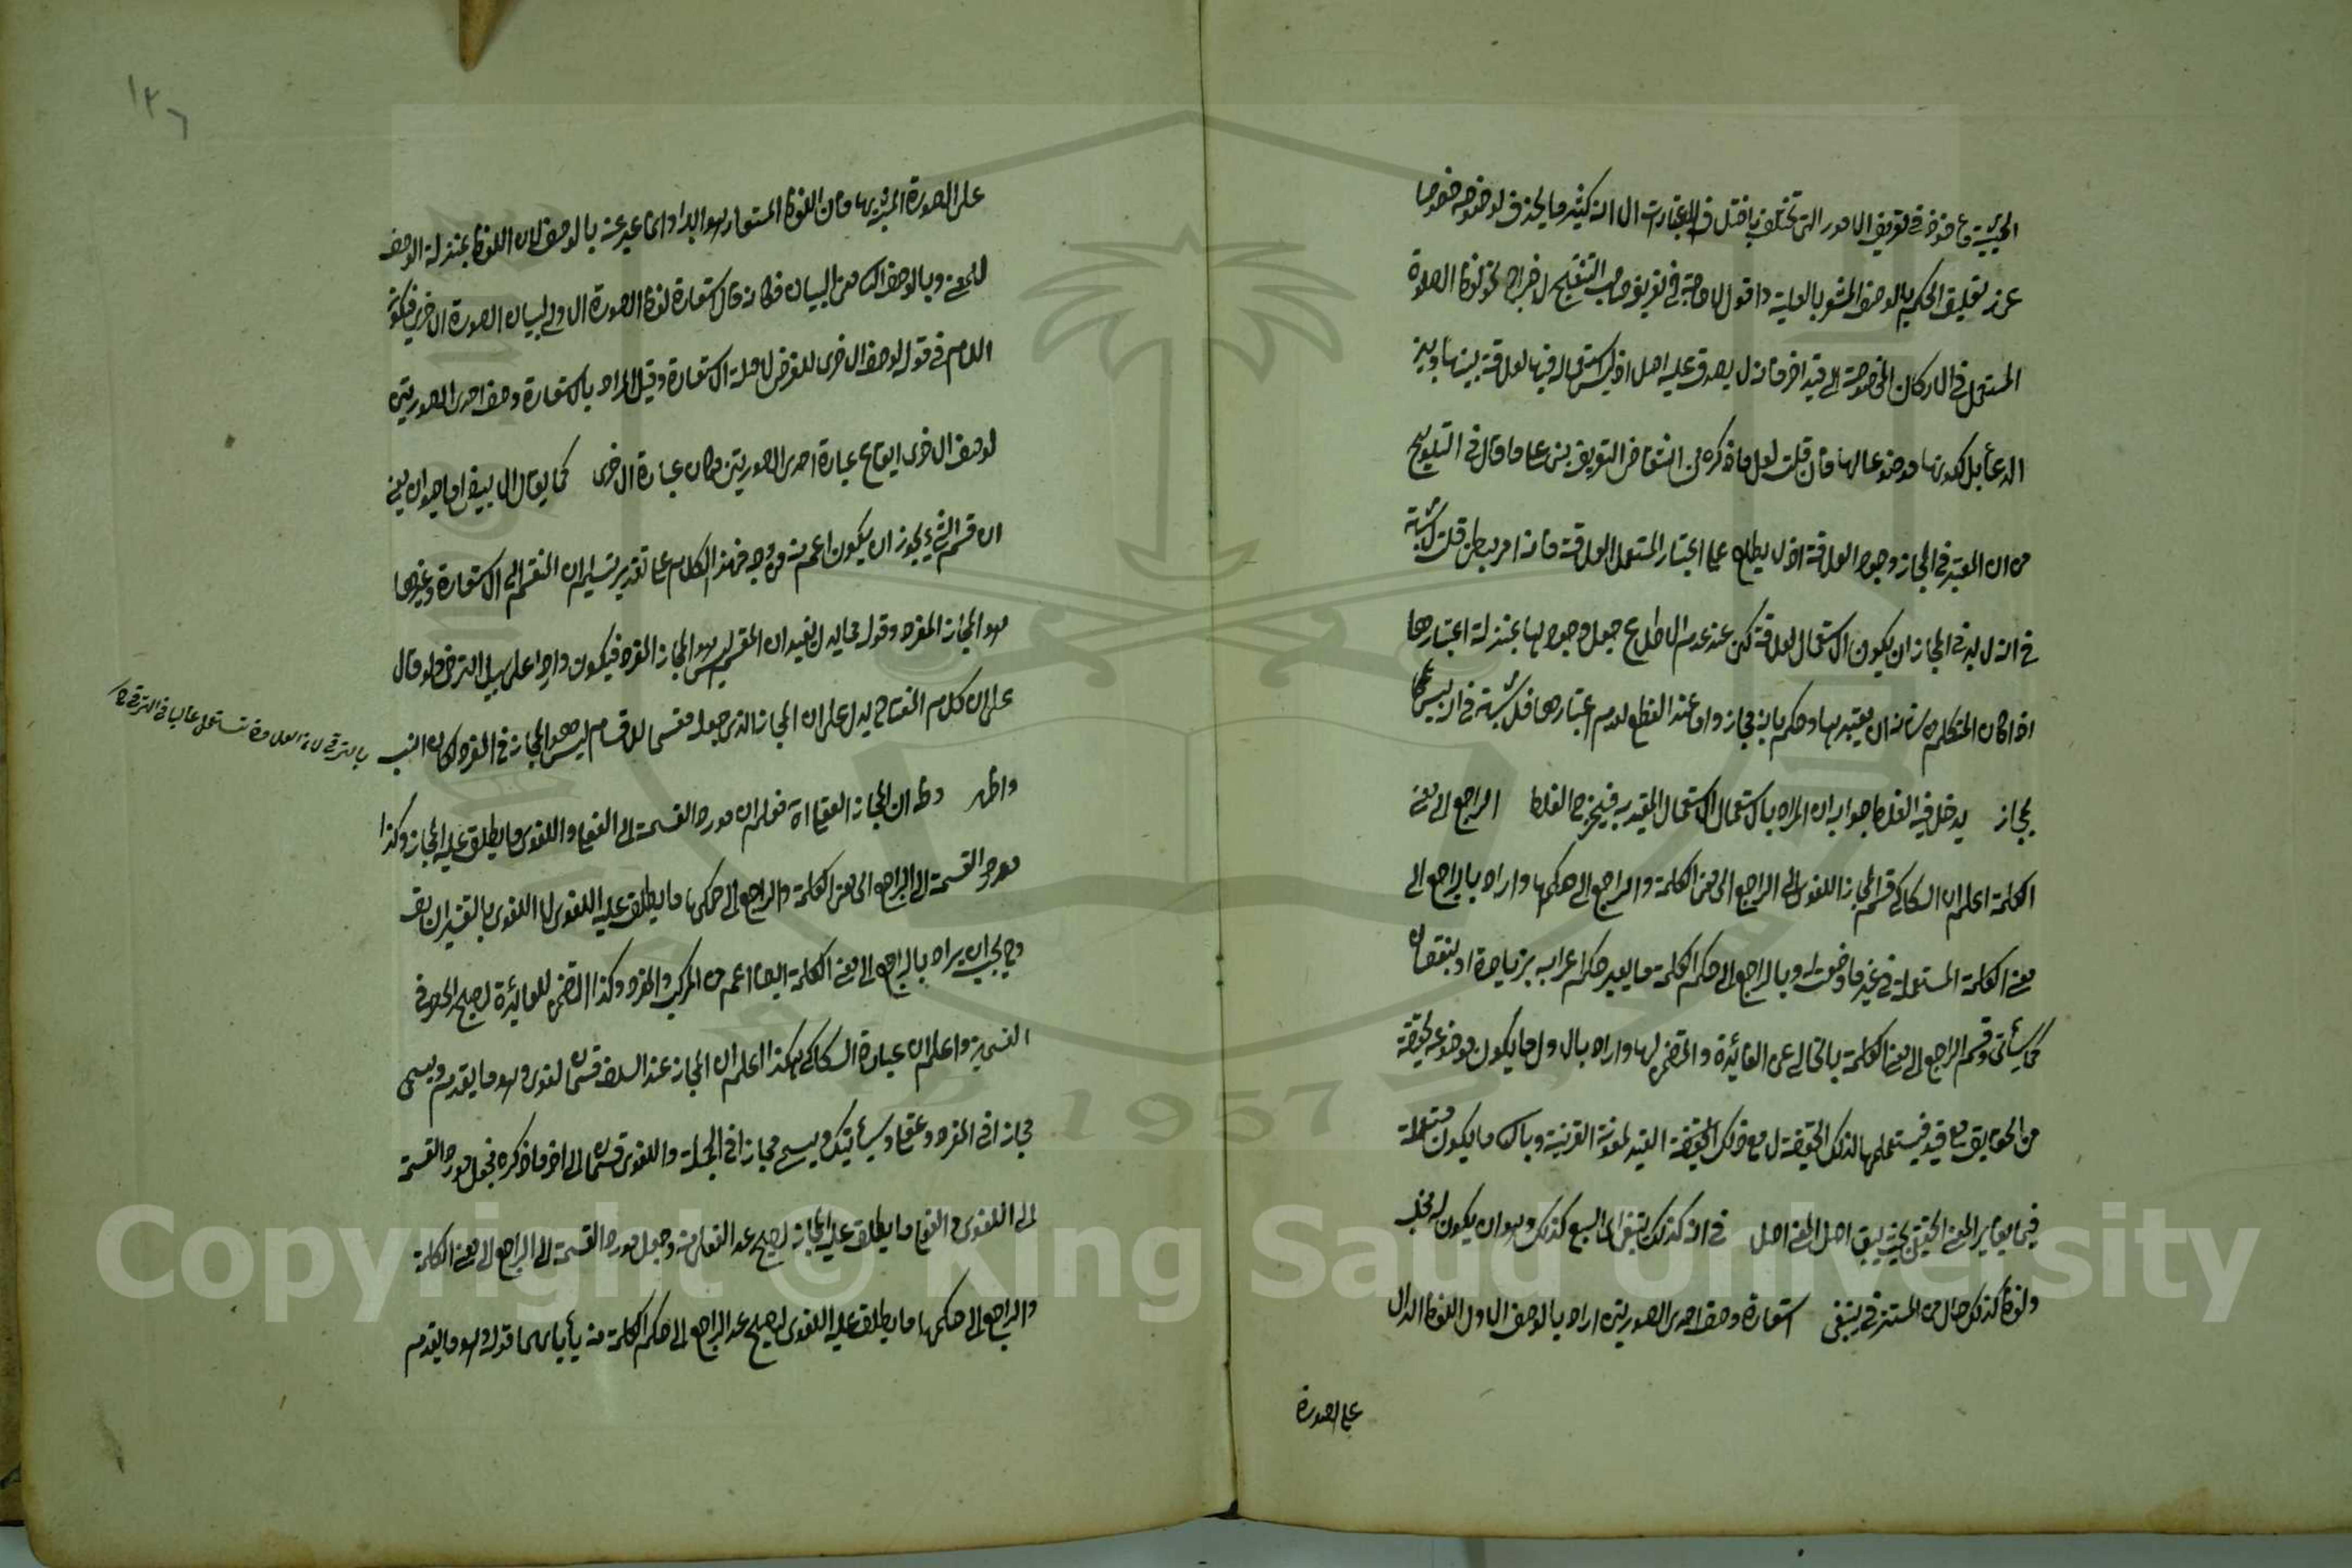 الحيثية مأخوذ في تعريف الامور التي تختلف باختلاف الاعتبارات الا انه كثير ما يحذف لوضوحه خصوصا
عند تعليق الحكم بالوصف المشعر بالعلية واقول لا حاجة في تعريف صاحب التنقيح لاخراج نحو لفظ الصلوة
المستعمل في الاركان المخصوصة الى قيد اخر فانه لا يصدق عليه اصلا اذ ليس استعماله فيها لعلاقة بينها وبين
الدعأ بل لكونها موضوعا لها فان قلت لعل ما ذكره من انتقاض التعريف بنى على ما قال في التلويح
من ان المعتبر في المجاز وجود العلاقة اذ لا يطلع على اعتبار المستعمل العلاقة فانه امر بطن قلت لا شبهة
في انه لا بد في المجاز ان يكون الاستعمال لعلاقة لكن عند عدم الاطلاع جعل وجودها بمنزلة اعتبارها
اذا كان المتكلم من شانه ان يعتبرها وحكم بانه مجاز واما عند القطع لعدم اعتبارها فلا شبهة في انه ليس
بمجاز يدخل فيه الغلط جوابه ان المراد بالاستعمال الاستعمال المقيد به فيخرج الغلط الراجع الى معنى
الكلمة اعلم ان السكاكي قسم المجاز اللغوى الى الراجع الى معنى الكلمة والراجع الى حكمها واراد بالراجع الى
معنى الكلمة المستعملة في غير ما وضعت له وبالراجع الى حكم الكلمة ما يغير حكم اعرابه بزيادة او بنقصان
كما سيأتى وقسم الراجع الى معنى الكلمة بالخالى عن الفائدة والمتضمن لها واراد بالاول ما يكون موضوعه لحقيقة
من الحقايق مع قيد فيستعملها لذلك الحقيقة لا مع ذلك القيد لمعونة القرينة وبال ما يكون مستعملة
فيما يغاير المعنى الحقيقى بحيث اصل المعنى اصل في انه كذلك ينبغى السبع كذلك وهو ان يكون له مخلب
ولفظ كذلك حال من المستتر في ينبغى استعارة وصف احدى الصورتين اراد بالوصف الاول اللفظ الدال
على الصورة
١٢٦
على الصورة المشبه بها فان اللفظ المستعار هو ابدا وانما عبر عنه بالوصف لان اللفظ بمنزلة الوصف
للمعنى وبالوصف الثانى البيان فكانه قال استعارة لفظ الصورة الاولى لبيان الصورة الاخرى فيكون
اللام في قوله لوصف الاخرى للغرض لا صلة الاستعارة وقيل المراد باستعارة وصف احدى الصورتين
لوصف الاخرى ايقاع عبارة احدى الصورتين مكان عبارة الاخرى كما يقال الابيض اما حيوان يعنى
ان قسم الشئ يجوز ان يكون اعم منه من وجه فهذا الكلام على تقدير تسليم ان المنقسم الى الاستعارة وغيرها
هو المجاز المفرد وقوله مما يدل يفيد ان المقسم ليس هو المجاز المفرد فيكون واردا على سبيل الترقى ولو قال
على ان كلام المفتاح يدل على ان المجاز الذى جعله مقسما للاقسام ليس هو المجاز في المفرد لكان انسب
بالترقى لان العلاوة تستعمل غالبا في الترقى
واظهر وظ ان المجاز العقلى اه فعلم ان مورد القسمة الى العقلى واللغوى ما يطلق عليه المجاز وكذا
مورد القسمة الى الراجع الى معنى الكلمة والراجع الى حكمها ما يطلق عليه اللغوى لا اللغوى بالتفسير
وح يجب ان يراد بالراجع الى معنى الكلمة ايضا اعم من المركب والمفرد وكذا المتضمن للفائدة ليصح الحصر في
القسمين واعلم ان عبارة السكاكى هكذا اعلم ان المجاز عند السلف قسمان لغوى وهو ما تقدم ويسمى
مجازا في المفرد وعقلى وسيأتيك ويسمى مجازا في الجملة واللغوى قسمان الى اخر ما ذكره فجعل مورد القسمة
الى اللغوى والعقلى ما يطلق عليه المجاز ليصح عد العقلى منه وجعل مورد القسمة الى الراجع الى معنى الكلمة
والراجع الى حكمها ما يطلق عليه اللغوى ليصح عد الراجع الى حكم الكلمة منه قوله وهو ما تقدم